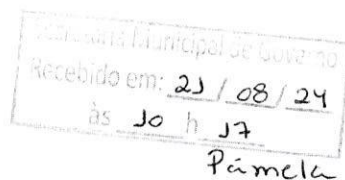 Secretaria Municipal de Governo
Recebido em: 21 / 08 / 24
às 10 h 17
Pâmela